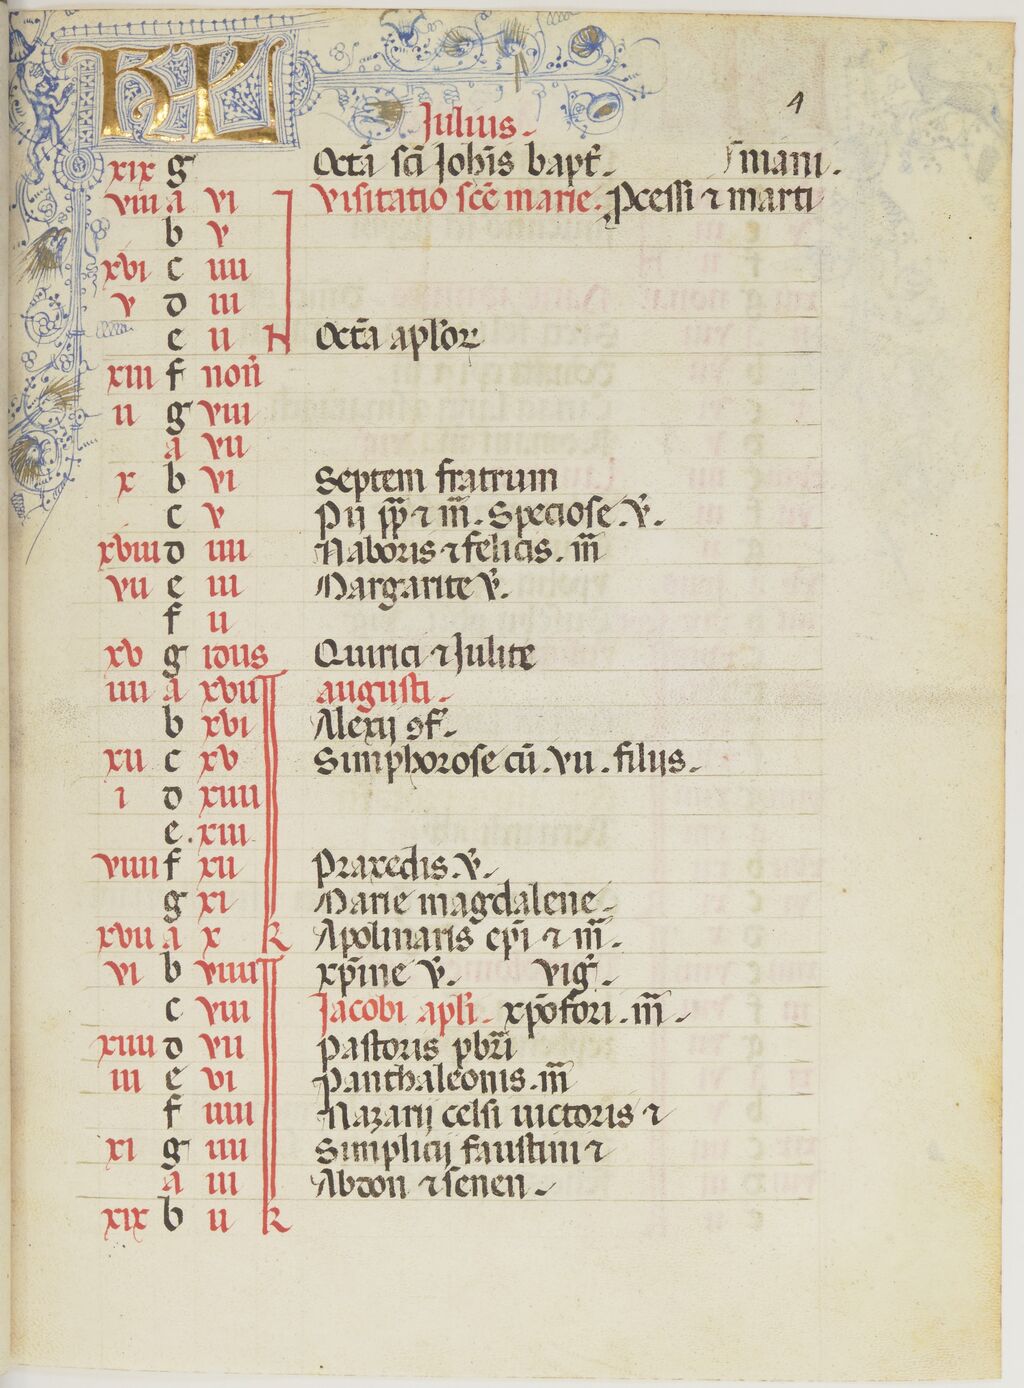 KL
4
Julius.
xix g Octā scī Johīs bapt̄. mani.
viii a vi visitatio scē marie. Pcessi ⁊ marti
b v
xvi c iiii
v d iii
e ii N Octā aplōꝝ
xiii f non̄
ii g viii
a vii
x b vi Septem fratrum
c v Pij pp̄ ⁊ m̄. Speciose. v̄.
xviii d iiii Naboris ⁊ felicis. m̄
vii e iii Margarite v̄.
f ii
xv g idus Quirici ⁊ Julite
iiii a xvii augusti.
b xvi Alexij ꝯf̄.
xii c xv Simphorose cū. vii. filijs.
i d xiiii
e. xiii
viiii f xii Praxedis. v̄.
g xi Marie magdalene.
xvii a x K Apolinaris ep̄i ⁊ m̄.
vi b viiii xp̄ine v̄. viḡ.
c viii Jacobi apl̄i. xp̄ofori. m̄.
xiiii d vii Pastoris pbr̄i
iii e vi Panthaleonis. m̄
f iiii Nazarij celsi uictoris ⁊
xi g iiii Simplicij faustini ⁊
a iii Abdon ⁊ senen.
xix b ii K